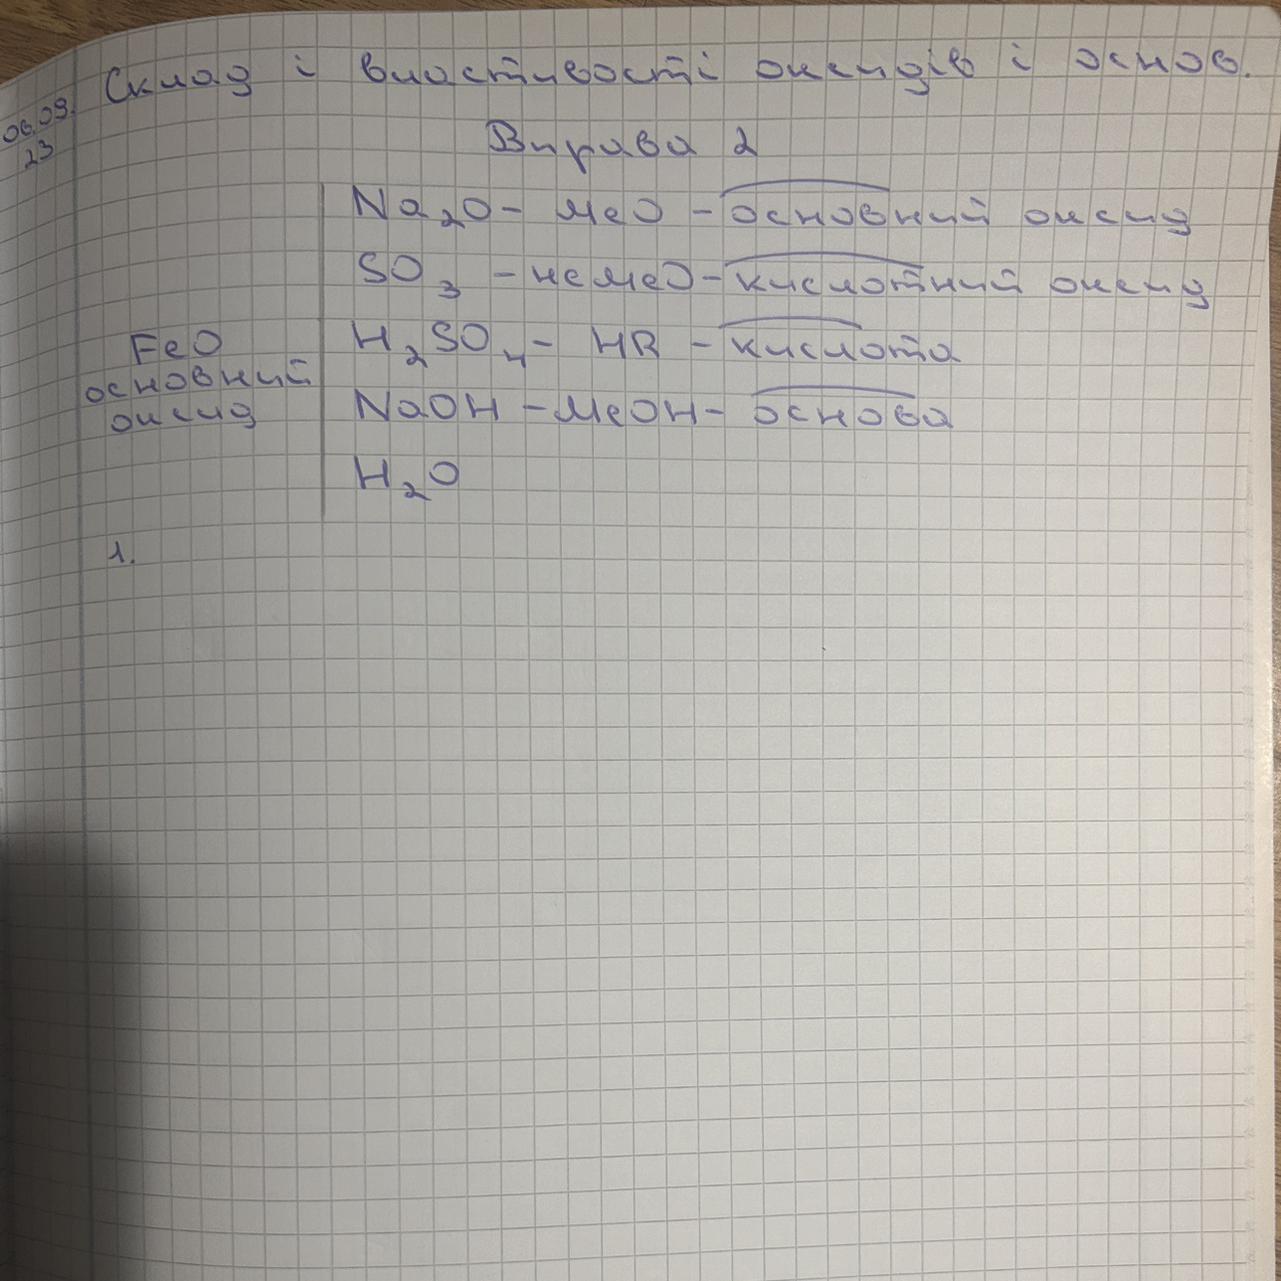 06.09.
23
Склад і властивості оксидів і основ.
Вправа 2
Na₂O - MeO - основний оксид
SO₃ - неMeO - кислотний оксид
H₂SO₄ - HR - кислота
NaOH - MeOH - основа
H₂O
FeO
основний
оксид
1.